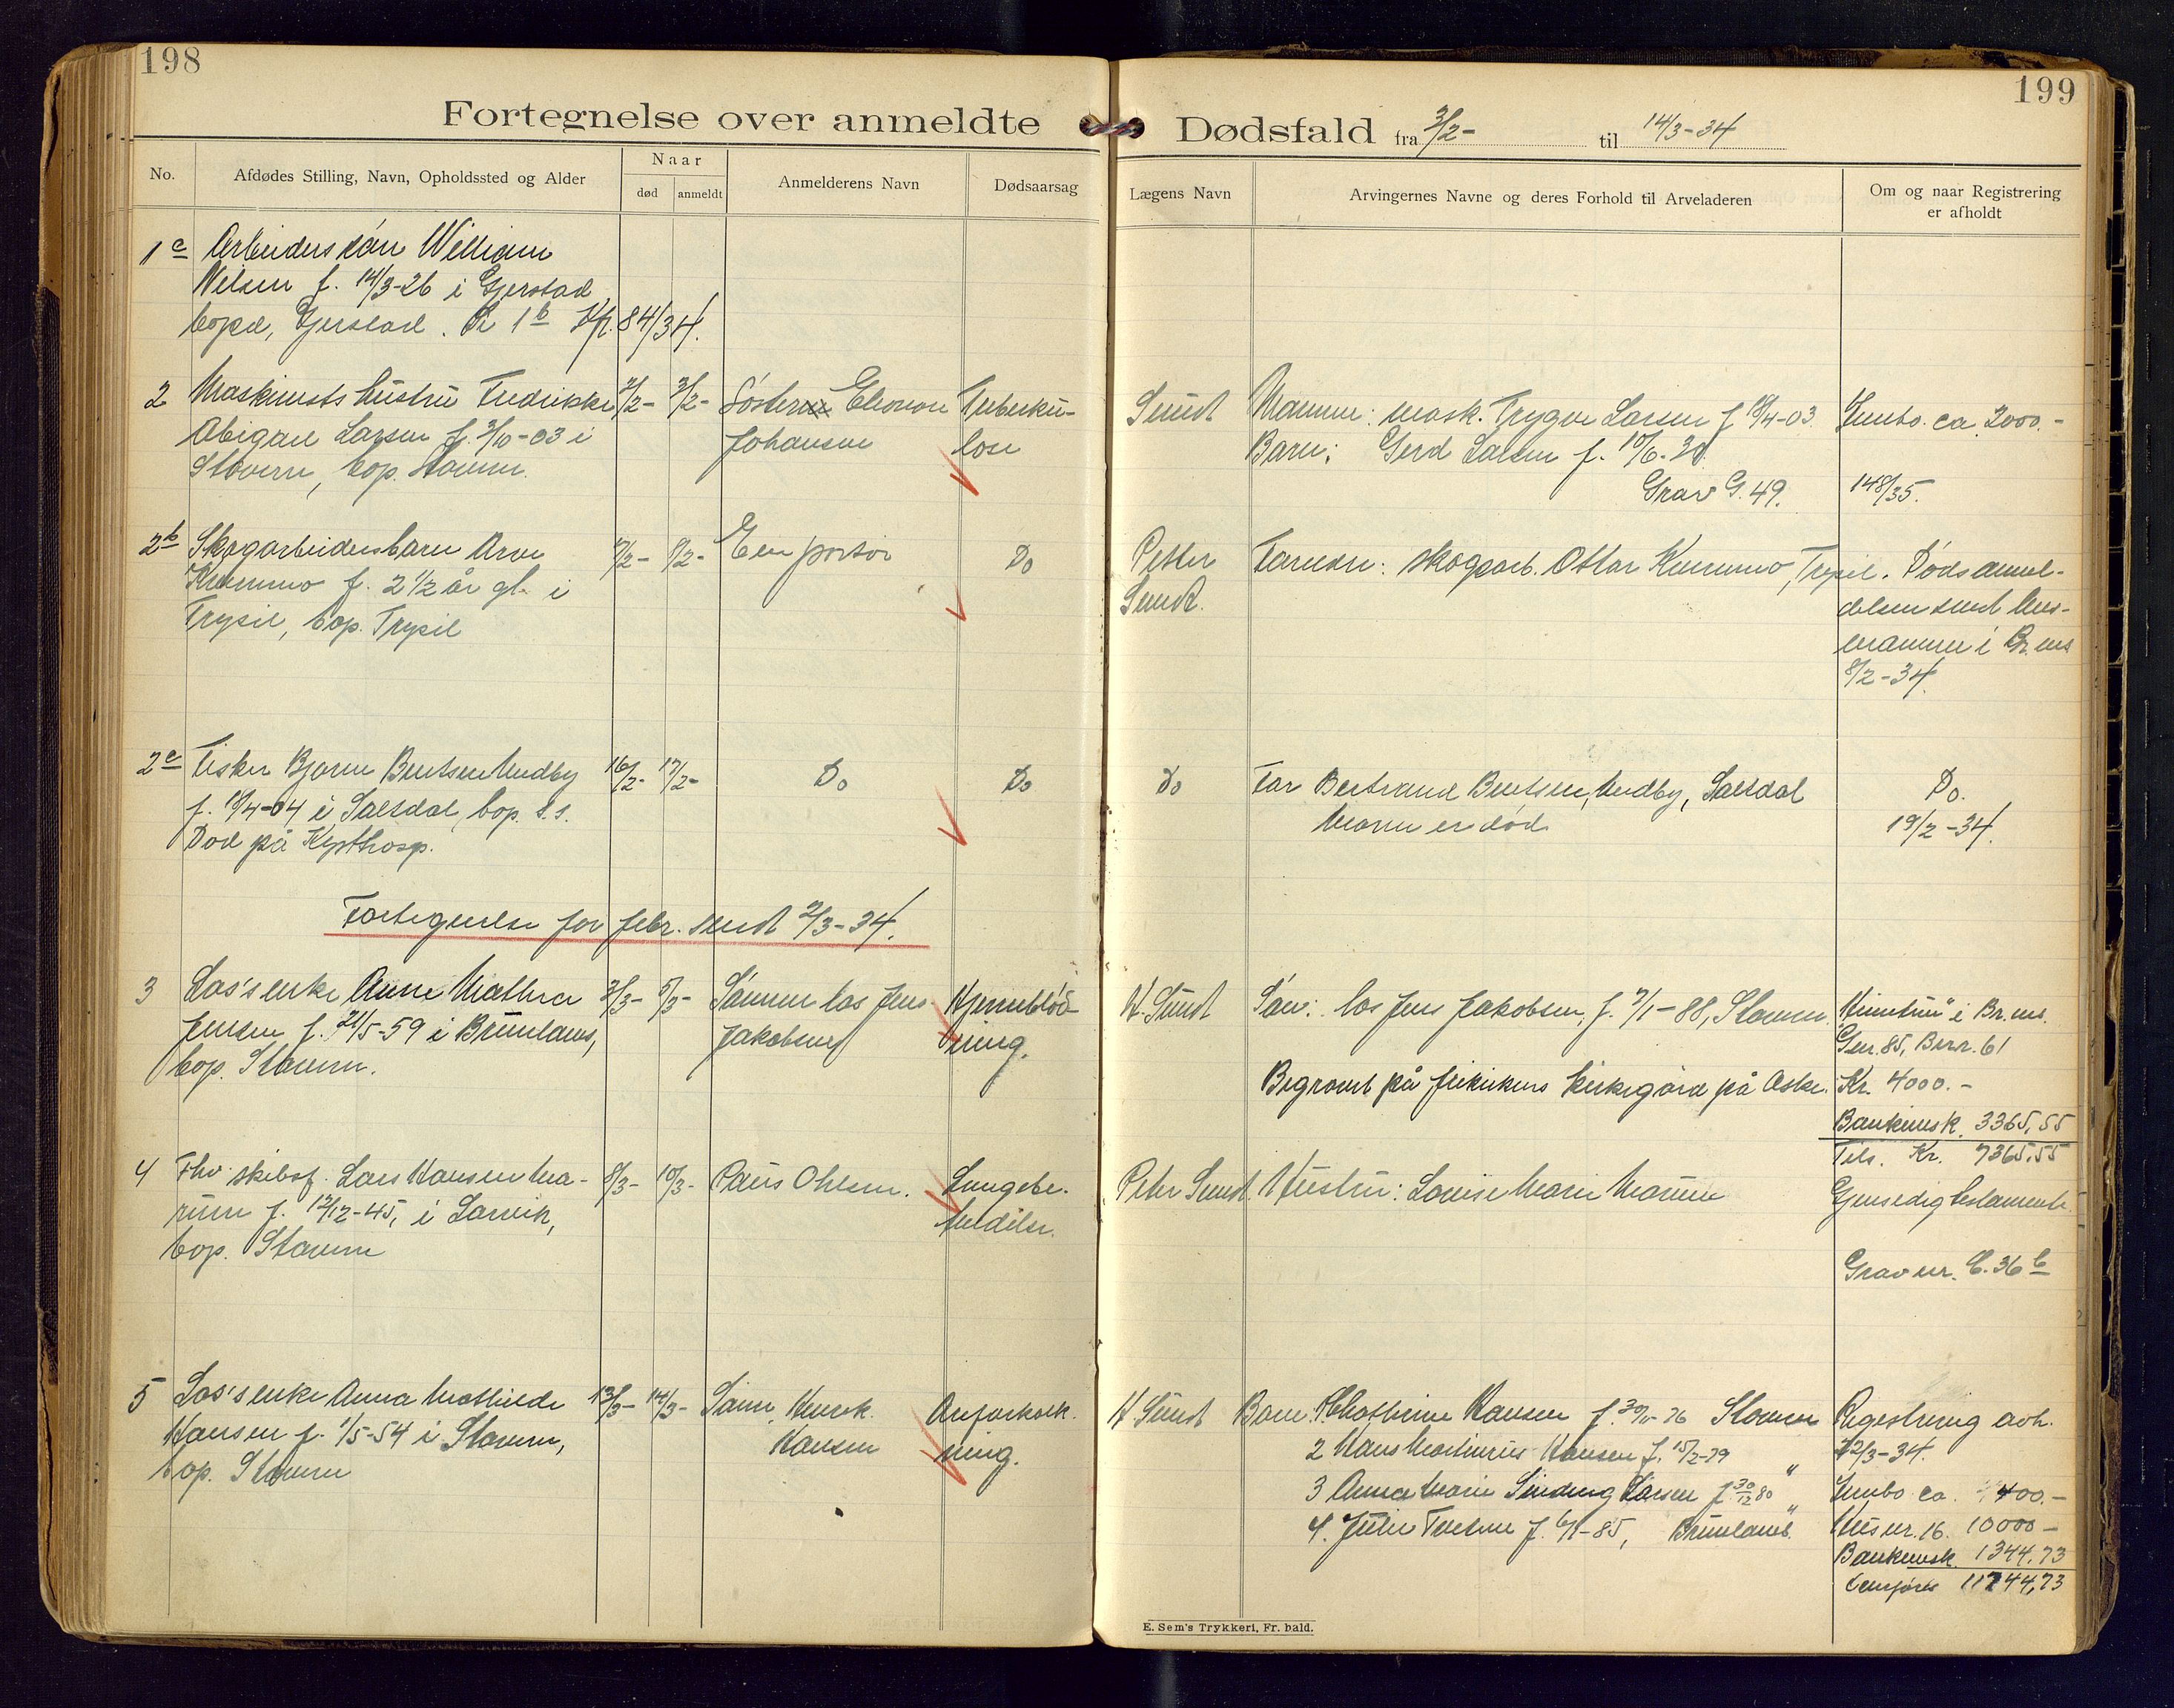 198
199
Fortegnelse over anmeldte
Dødsfald fra 3/2- til 14/3-34
No.
Afdødes Stilling, Navn, Opholdssted og Alder
Naar
død
anmeldt
Anmelderens Navn
Dødsaarsag
Lægens Navn
Arvingernes Navne og deres Forhold til Arveladeren
Om og naar Registrering
er afholdt
1c Arbeiders sön William
Nilsen f. 14/3-26 i Gjerstad
bopæl, Gjerstad. 1b Kfr. 84/34.
2 Maskinists hustru Fredrikke
Abigael Larsen f. 3/10-03 i
Stavern, bop. Stavern.
2/2- 3/2-
Söster Eleonore
Johansen
Tuberku-
lose
Sundt
Mannen: mask. Trygve Larsen f. 18/4-03
Barn: Gerd Larsen f. 10/6-30
Grav G. 49.
Innbo. ca. 2000.-
148/35.
2b Skogarbeidersbarn Arve
Kummo f. 2 1/2 år gl. i
Trysil, bop. Trysil
7/2- 8/2-
Een portör
Do
Petter
Sundt.
Farædre: skogarb. Ottar Kummo, Trysil.
Dödsanmel-
delsen sendt lens-
mannen i Br.nes
8/2-34.
2c Fisker Bjarne Bentsen Undby
f. 18/4-04 i Saltdal, bop. s.s.
Död på Kysthosp.
16/2- 17/2-
Do
Do
Do
Far Bertrand Bentsen, Undby, Saltdal
Moren er död
Do.
19/2-34.
Fortegnelse for febr. sendt 2/3-34.
3 Los's enke Anne Mathea
Jensen f. 21/5-59 i Brunlanes,
bop. Stavern.
3/3- 5/3-
Sönnen los Jens
Jakobsen
Hjerneblöd-
ning.
H. Sundt
Sön: los Jens Jakobsen, f. 7/1-88, Stavern.
Begravet på frikirkens kirkegård på Aske.
"Minnetun" i Br.nes.
Gnr. 85, Bnr. 61
Kr. 4000.-
Bankinnsk. 3365,55
Tils. Kr. 7365,55
4 Fhv. skibsf. Lars Hansen Ma-
rum f. 12/12-45, i Larvik,
bop. Stavern
8/3- 10/3-
Paus Ohlsen.
Lungebe-
tendelse.
Peter Sundt.
Hustru: Lovise Marie Marum
Gjensidig testamente.
Grav nr. C. 36 b
5 Los's enke Anna Mathilde
Hansen f. 1/5-54 i Stavern,
bop. Stavern
13/3- 14/3-
Sönn, Henrik
Hansen
Areforkalk-
ning.
H Sundt
Barn: Kathrine Hansen f. 30/11-76 Stavern
2 Hans Martinius Hansen f. 15/2-79 "
3 Anna Marie Sinding Larsen f. 30/12 80 "
4. Julie Tvetene f. 6/1-85, Brunlanes.
Registrering avh.
22/3-34.
Innbo ca. 400.-
Hus nr. 16. 10000-
Bankinnsk. 1344,73
11744,73
E. Sem's Trykkeri, Fr. hald.